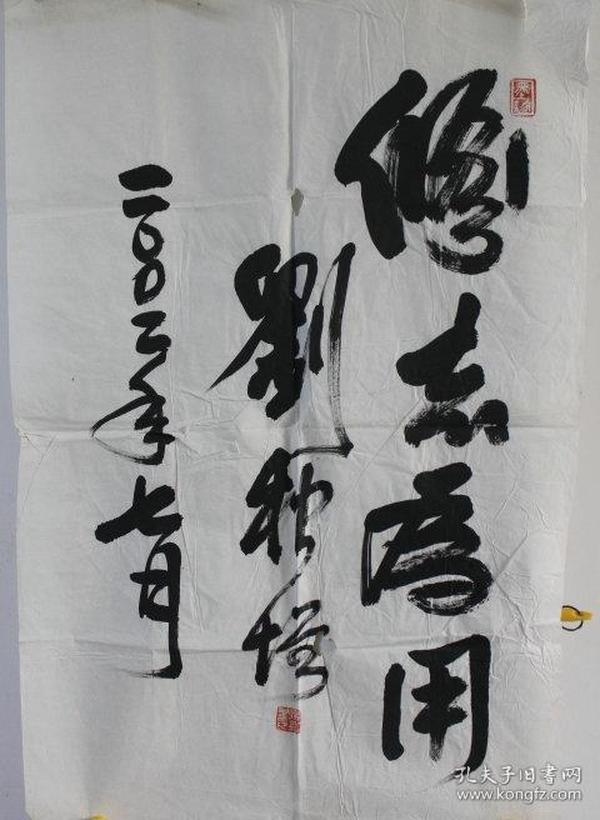 修志為用
劉
二〇〇二年七月
孔夫子旧书网
www.kongfz.com